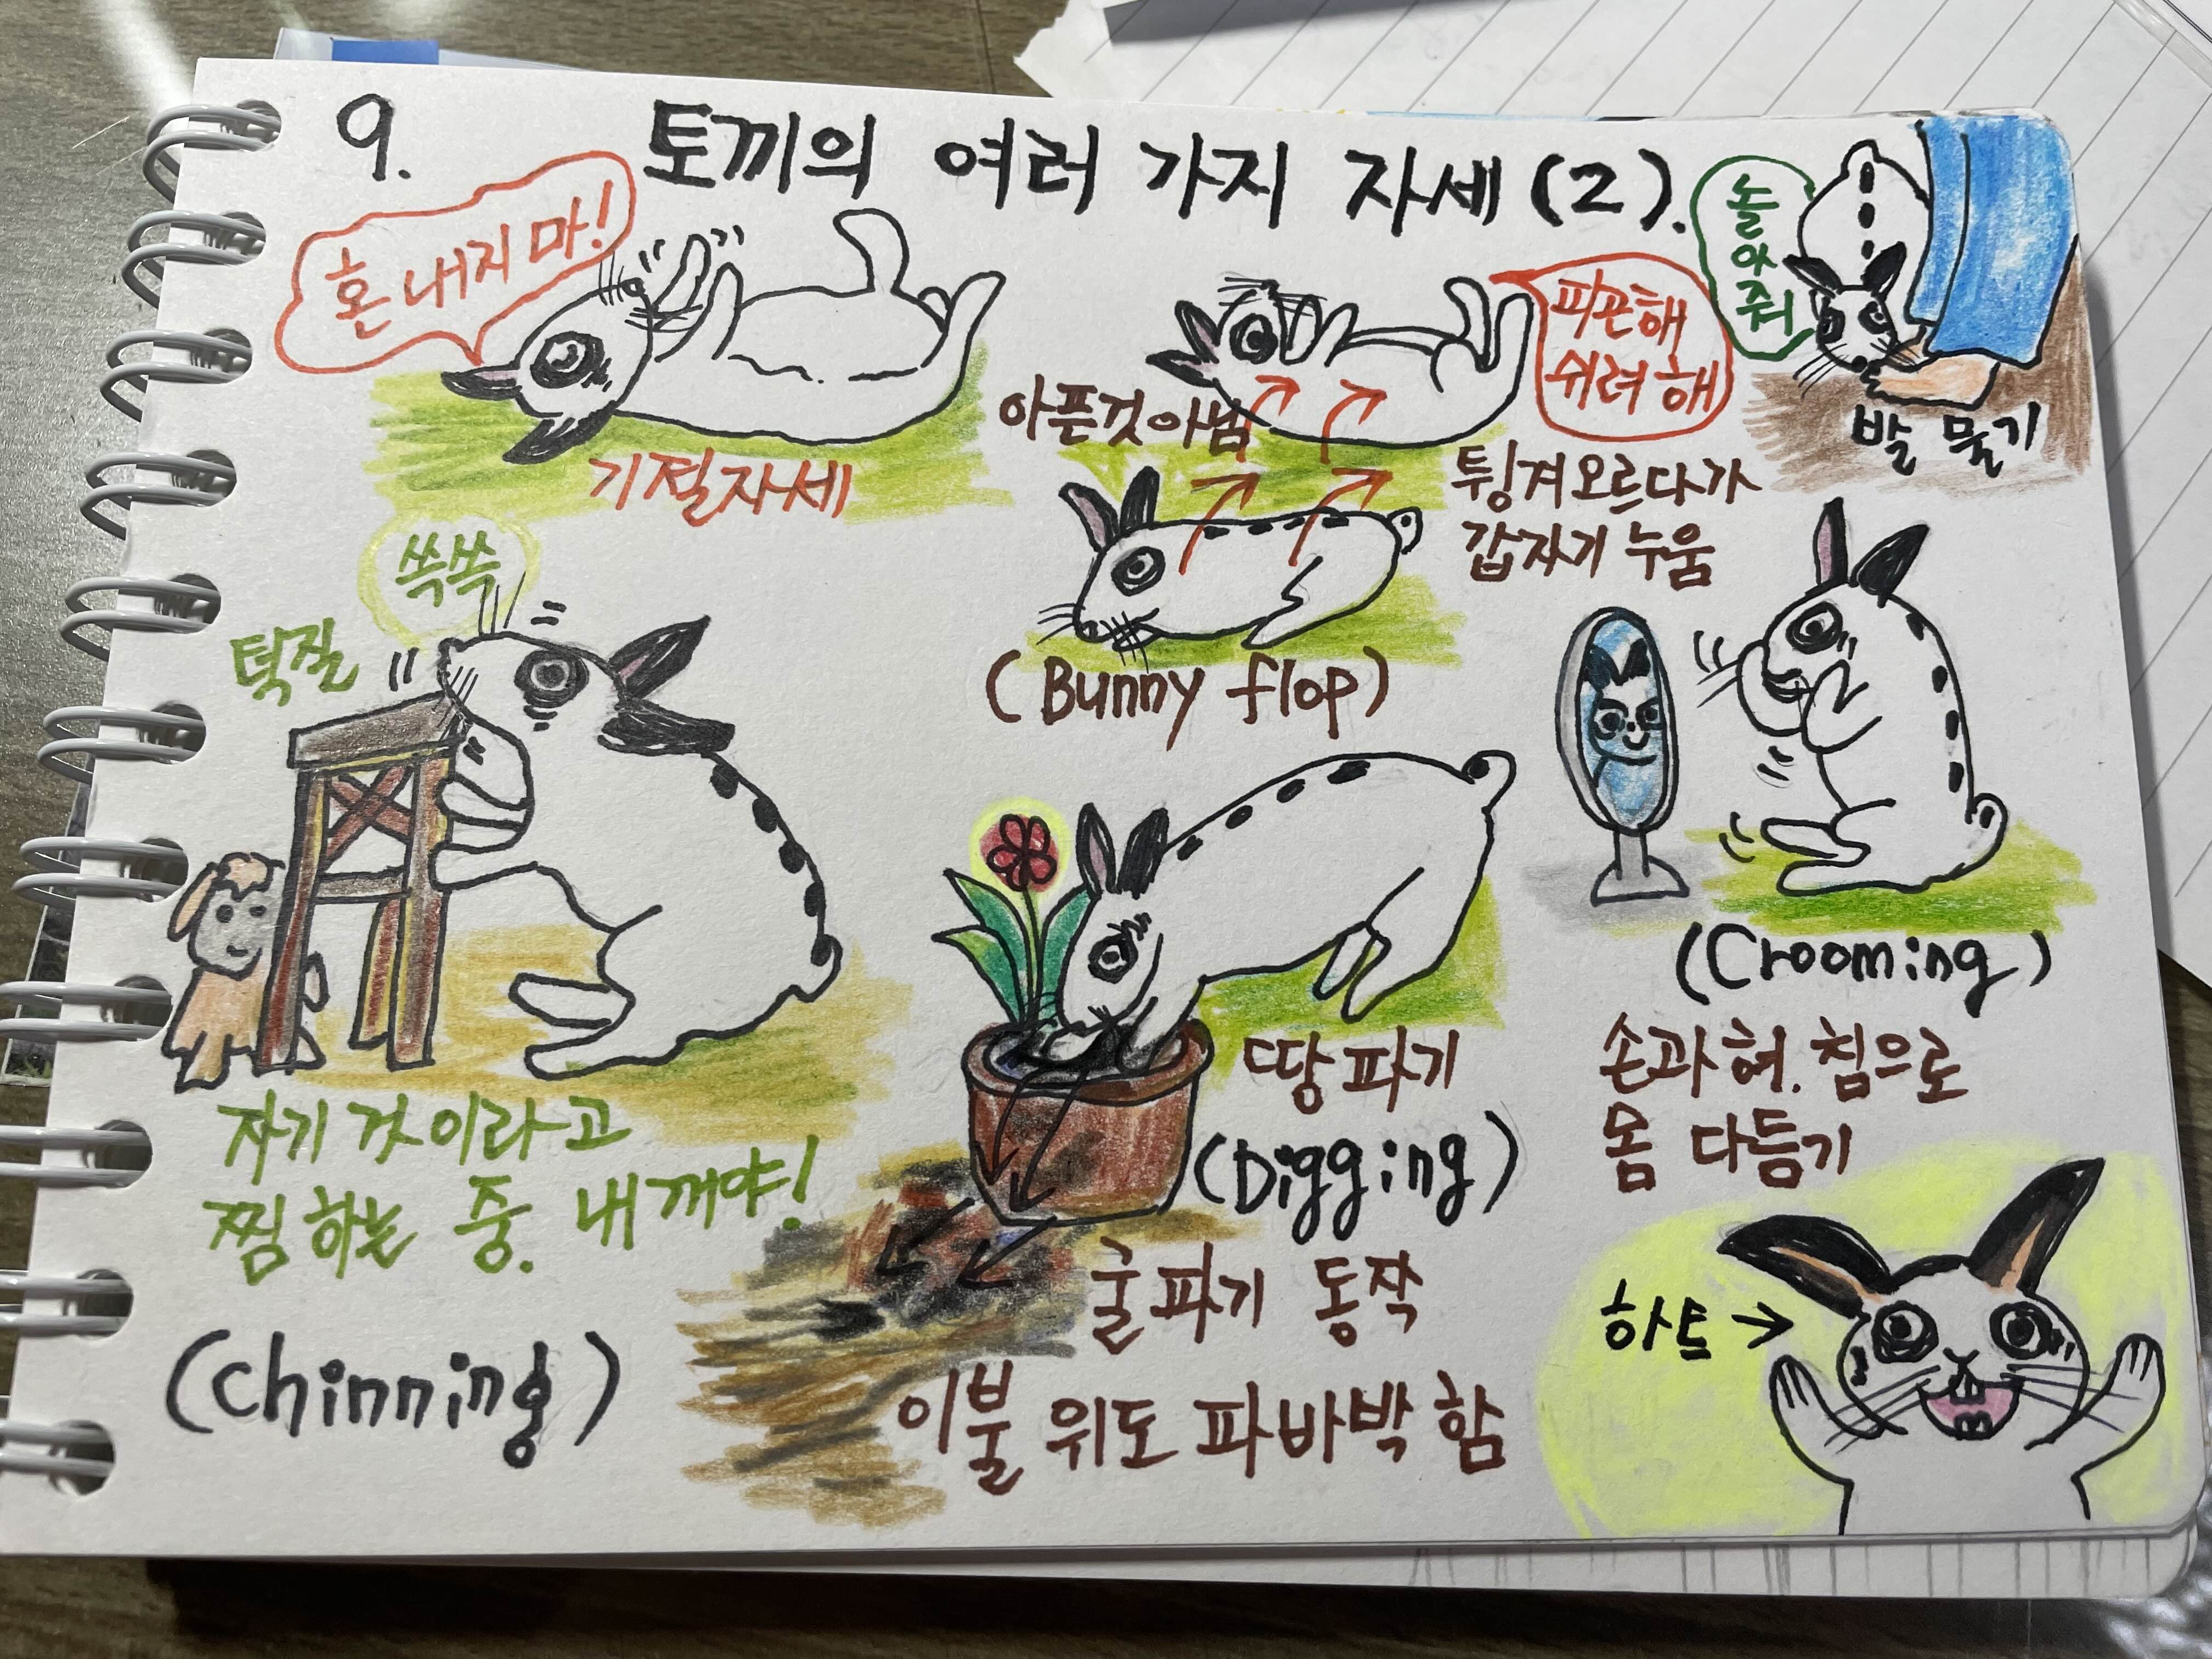 9. 토끼의 여러 가지 자세 (2).
혼내지 마!
기절자세
아픈것 아님
피곤해
쉬려 해
튕겨오르다가
갑자기 누움
(Bunny flop)
놀
아
줘
발 물기
쓱쓱
턱질
자기 것이라고
찜 하는 중. 내꺼야!
(chinning)
땅파기
(Digging)
굴파기 동작
이불 위도 파바박 함
(Crooming)
손과 혀. 침으로
몸 다듬기
하트 →